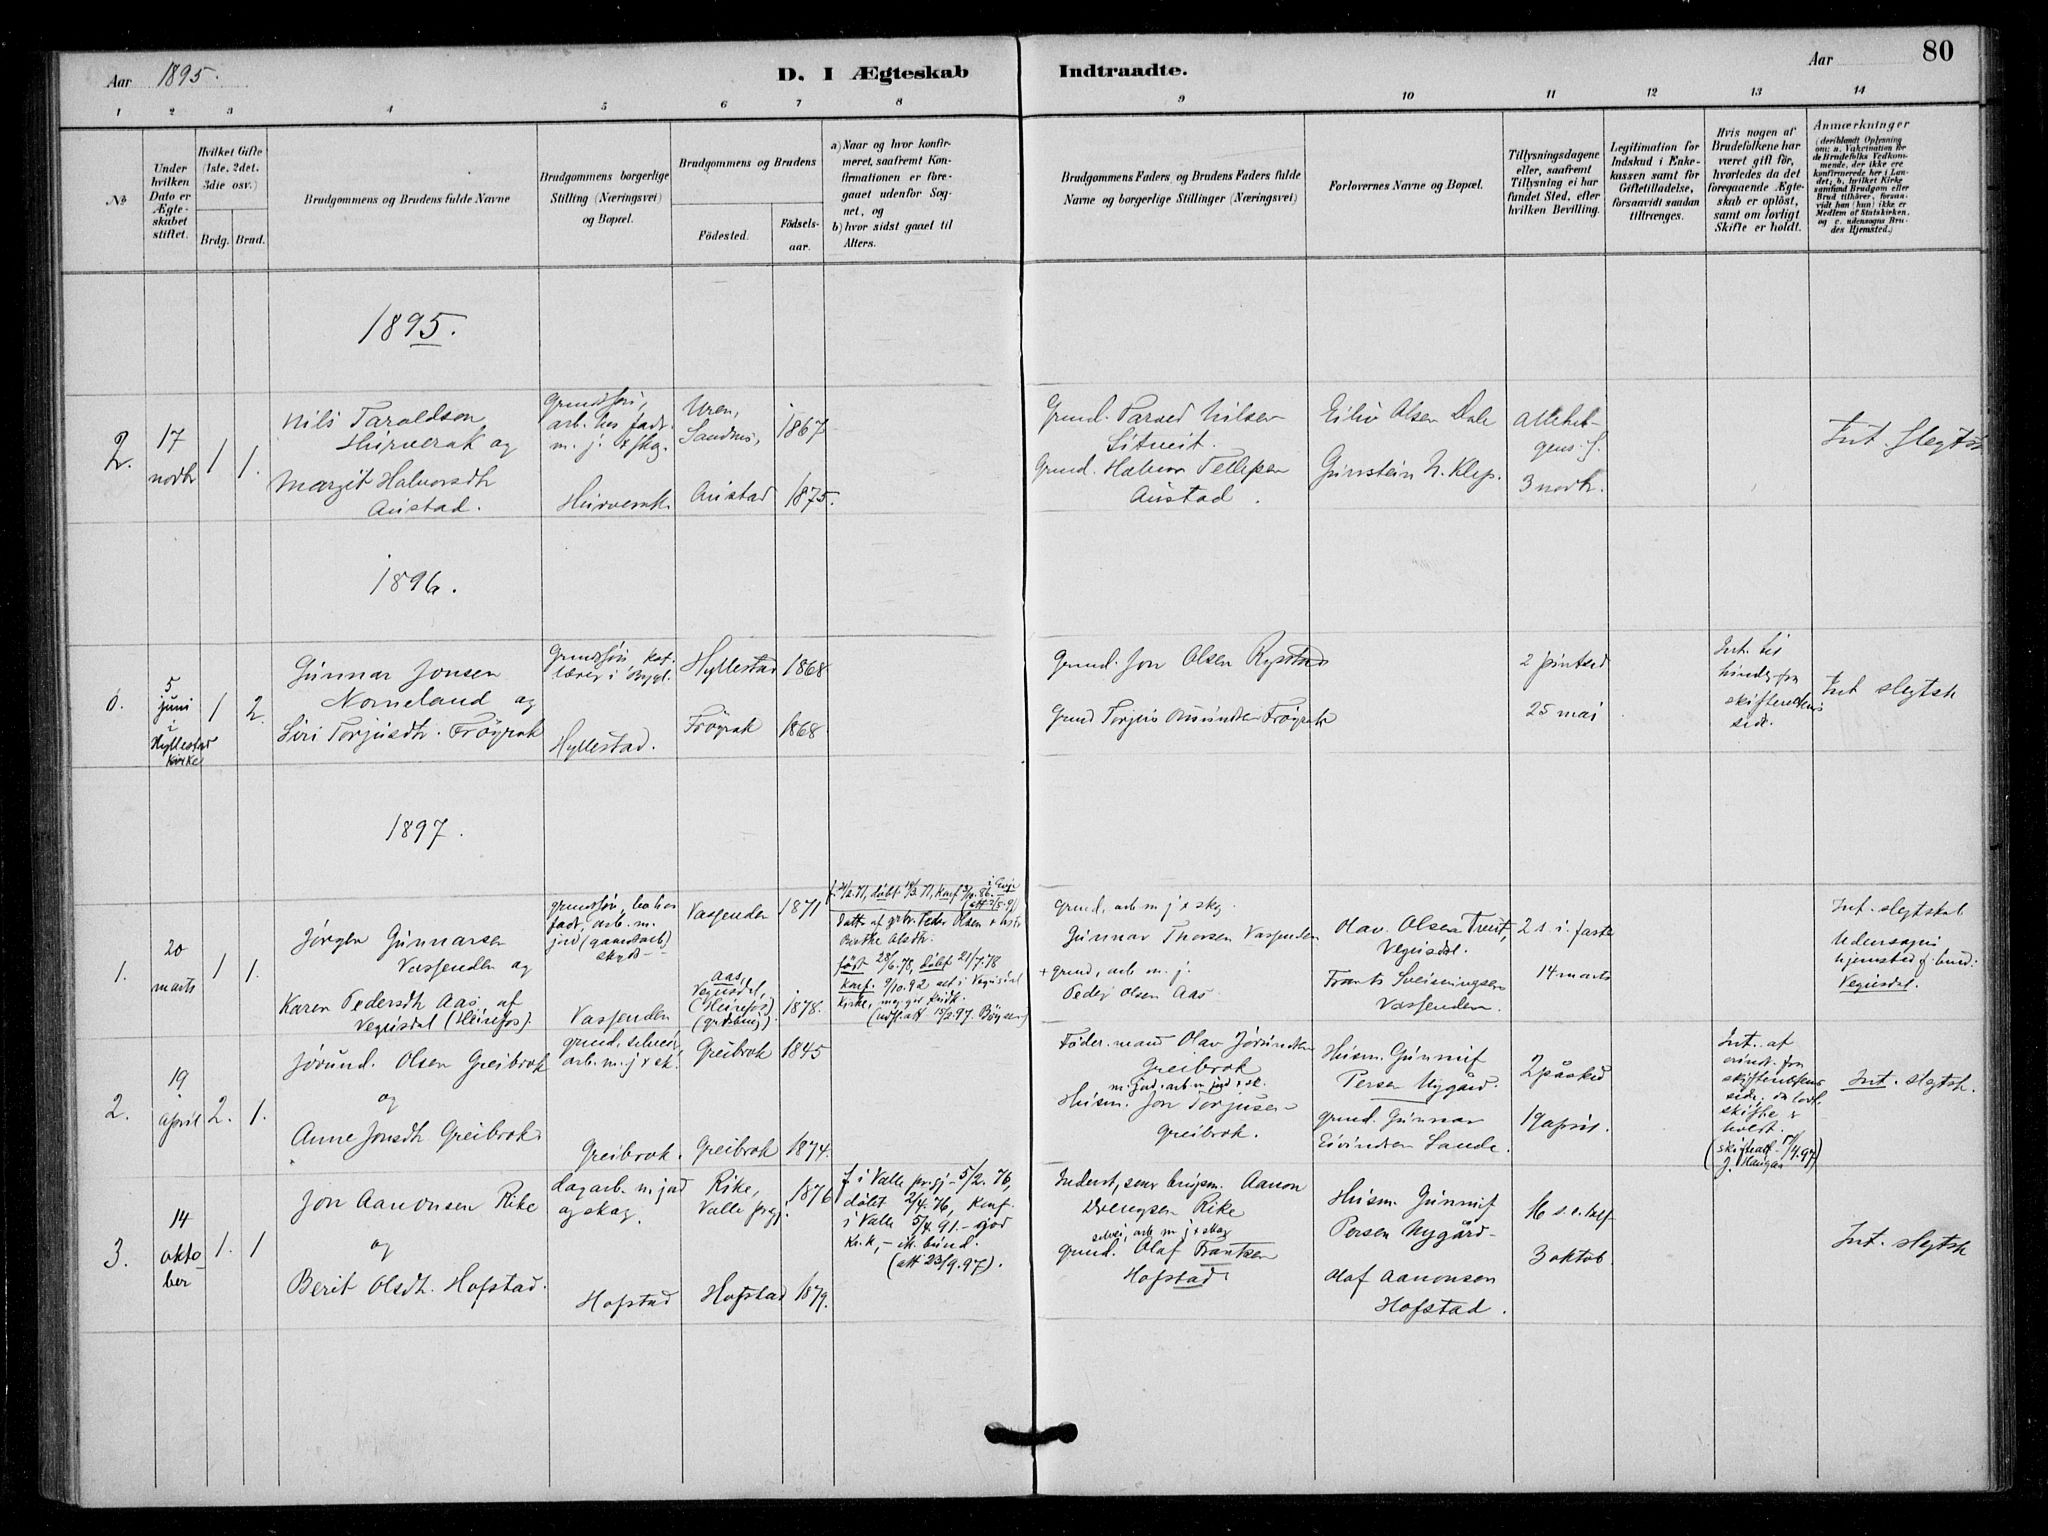 Aar 1895.
D. I Ægteskab
Indtraadte.
Aar
80
1 2 3 4 5 6 7 8 9 10 11 12 13 14
No
Under hvilken Dato er Ægteskabet stiftet.
Hvilket Gifte (1ste, 2det, 3die osv.)
Brdg. Brud.
Brudgommens og Brudens fulde Navne
Brudgommens borgerlige Stilling (Næringsvei) og Bopæl.
Brudgommens og Brudens
Fødested.
Fødselsaar.
a) Naar og hvor konfirmeret, saafremt Konfirmationen er foregaaet udenfor Sognet, og
b) hvor sidst gaaet til Alters.
Brudgommens Faders og Brudens Faders fulde Navne og borgerlige Stillinger (Næringsvei)
Forlovernes Navne og Bopæl.
Tillysningsdagene eller, saafremt Tillysning ei har fundet Sted, efter hvilken Bevilling.
Legitimation for Indskud i Enkekassen samt for Giftetilladelse, forsaavidt saadan tiltrænges.
Hvis nogen af Brudefolkene har været gift før, hvorledes da det foregaaende Ægteskab er opløst, samt om lovligt Skifte er holdt.
Anmærkninger
(deriblandt Oplysning om: a. Vakcination for de Brudefolks Vedkommende, der ikke ere konfirmerede her i Landet; b. hvilket Kirkesamfund Brudgom eller Brud tilhører, forsaavidt han (hun) ikke er Medlem af Statskirken, og c. udensogns Brudes Hjemsted.)
1895.
2.
17
novbr
1 1.
Nils Taraldsen
og
Margit Halvorsdtr
Austad.
arb. hos fadr
m. j. & skog.
Uren,
Sandnes,
1867
Austad 1875.
Grund. Nilsen
Grund. Halvor Tellefsen
Austad.
Eiliv Olsen Dale
Gunstein N. Klep.
Allehelgens f.
3 novbr.
Int. slegtsk
1896.
0.
5
juni
i
Hyllestad
kirke
1 2.
Gunnar Jonsen
Nomeland og
Siri Torjusdtr. Frøyrak
Hyllestad.
Hyllestad 1868
Frøyrak 1868
Grund. Jon Olsen Rysstad
Grund Torjus Aamundsen Frøyrak
2 pintsed
25 mai
Int. til
hinder fra
skifterettens
side.
Int slegtsk
1897.
1.
20
marts
1 1.
Jørgen Gunnarsen
Vassenden og
Karen Pedersdtr Aas af
Vegusdal (Heirefos).
fadr, arb. m.
jord (gaardsarb)
Vassenden
Vassenden 1871
Aas,
Vegusdal,
(Heirefos) 1878.
Datt. af Peder Olsen
Birthe Olsdtr.
født 28/6.78, døbt 21/7.78
konf. 9/10.92 alt i Vegusdal
kirke,
grund, arb m j & skog
Gunnar Thorsen Vassenden
+ grund, arb m. j.
Peder Olsen Aas
Olav Olsen
Vegusdal.
Frants Sveinungsen
Vassenden
2 s. i. faste
14 marts
Int. slegtskab
Udensogns
hjemsted f. brud:
Vegusdal.
2.
19
april
2. 1.
Jørund Olsen Greibrok
og
Anne Jonsdtr Greibrok
grund, selveier
arb. m. j & sk.
Greibrok.
Greibrok 1845
Greibrok 1874.
Føder. mand Olav Jørundsen
Greibrok
m. jord, arb m jord & sk.
Husm. Jon Torjusen
Greibrok.
Husm. Gunnuf
Persen Nygård.
grund. Gunnar
Eivindsen Sande.
2 påsked
19 april.
Int. af
hind. fra
skifterettens
side, da lovl.
skifte &
holdt.
J. Haugaa
Int. slegtsk.
3.
14
oktober
1. 1
Jon Aanonsen Rike
og
Berit Olsdtr. Hofstad.
dagarb. m jord
og skog.
Hofstad
Rike,
Valle prgj. 1876
Hofstad 1879.
f. i Valle prgj. 5/2.76,
døbt 2/4.76, konf.
i Valle 5/4.91. – god
kr. k, – ik. bund.
(att 23/9.97).
Inderst, Aanon
Drengsen Rike
selvei, arb m j & skog
grund. Olaf Frantsen
Hofstad
Husm. Gunnuf
Persen Nygård
Olaf Aanonsen
Hofstad.
16 s. e. tref
3 oktob
Int. slegtsk